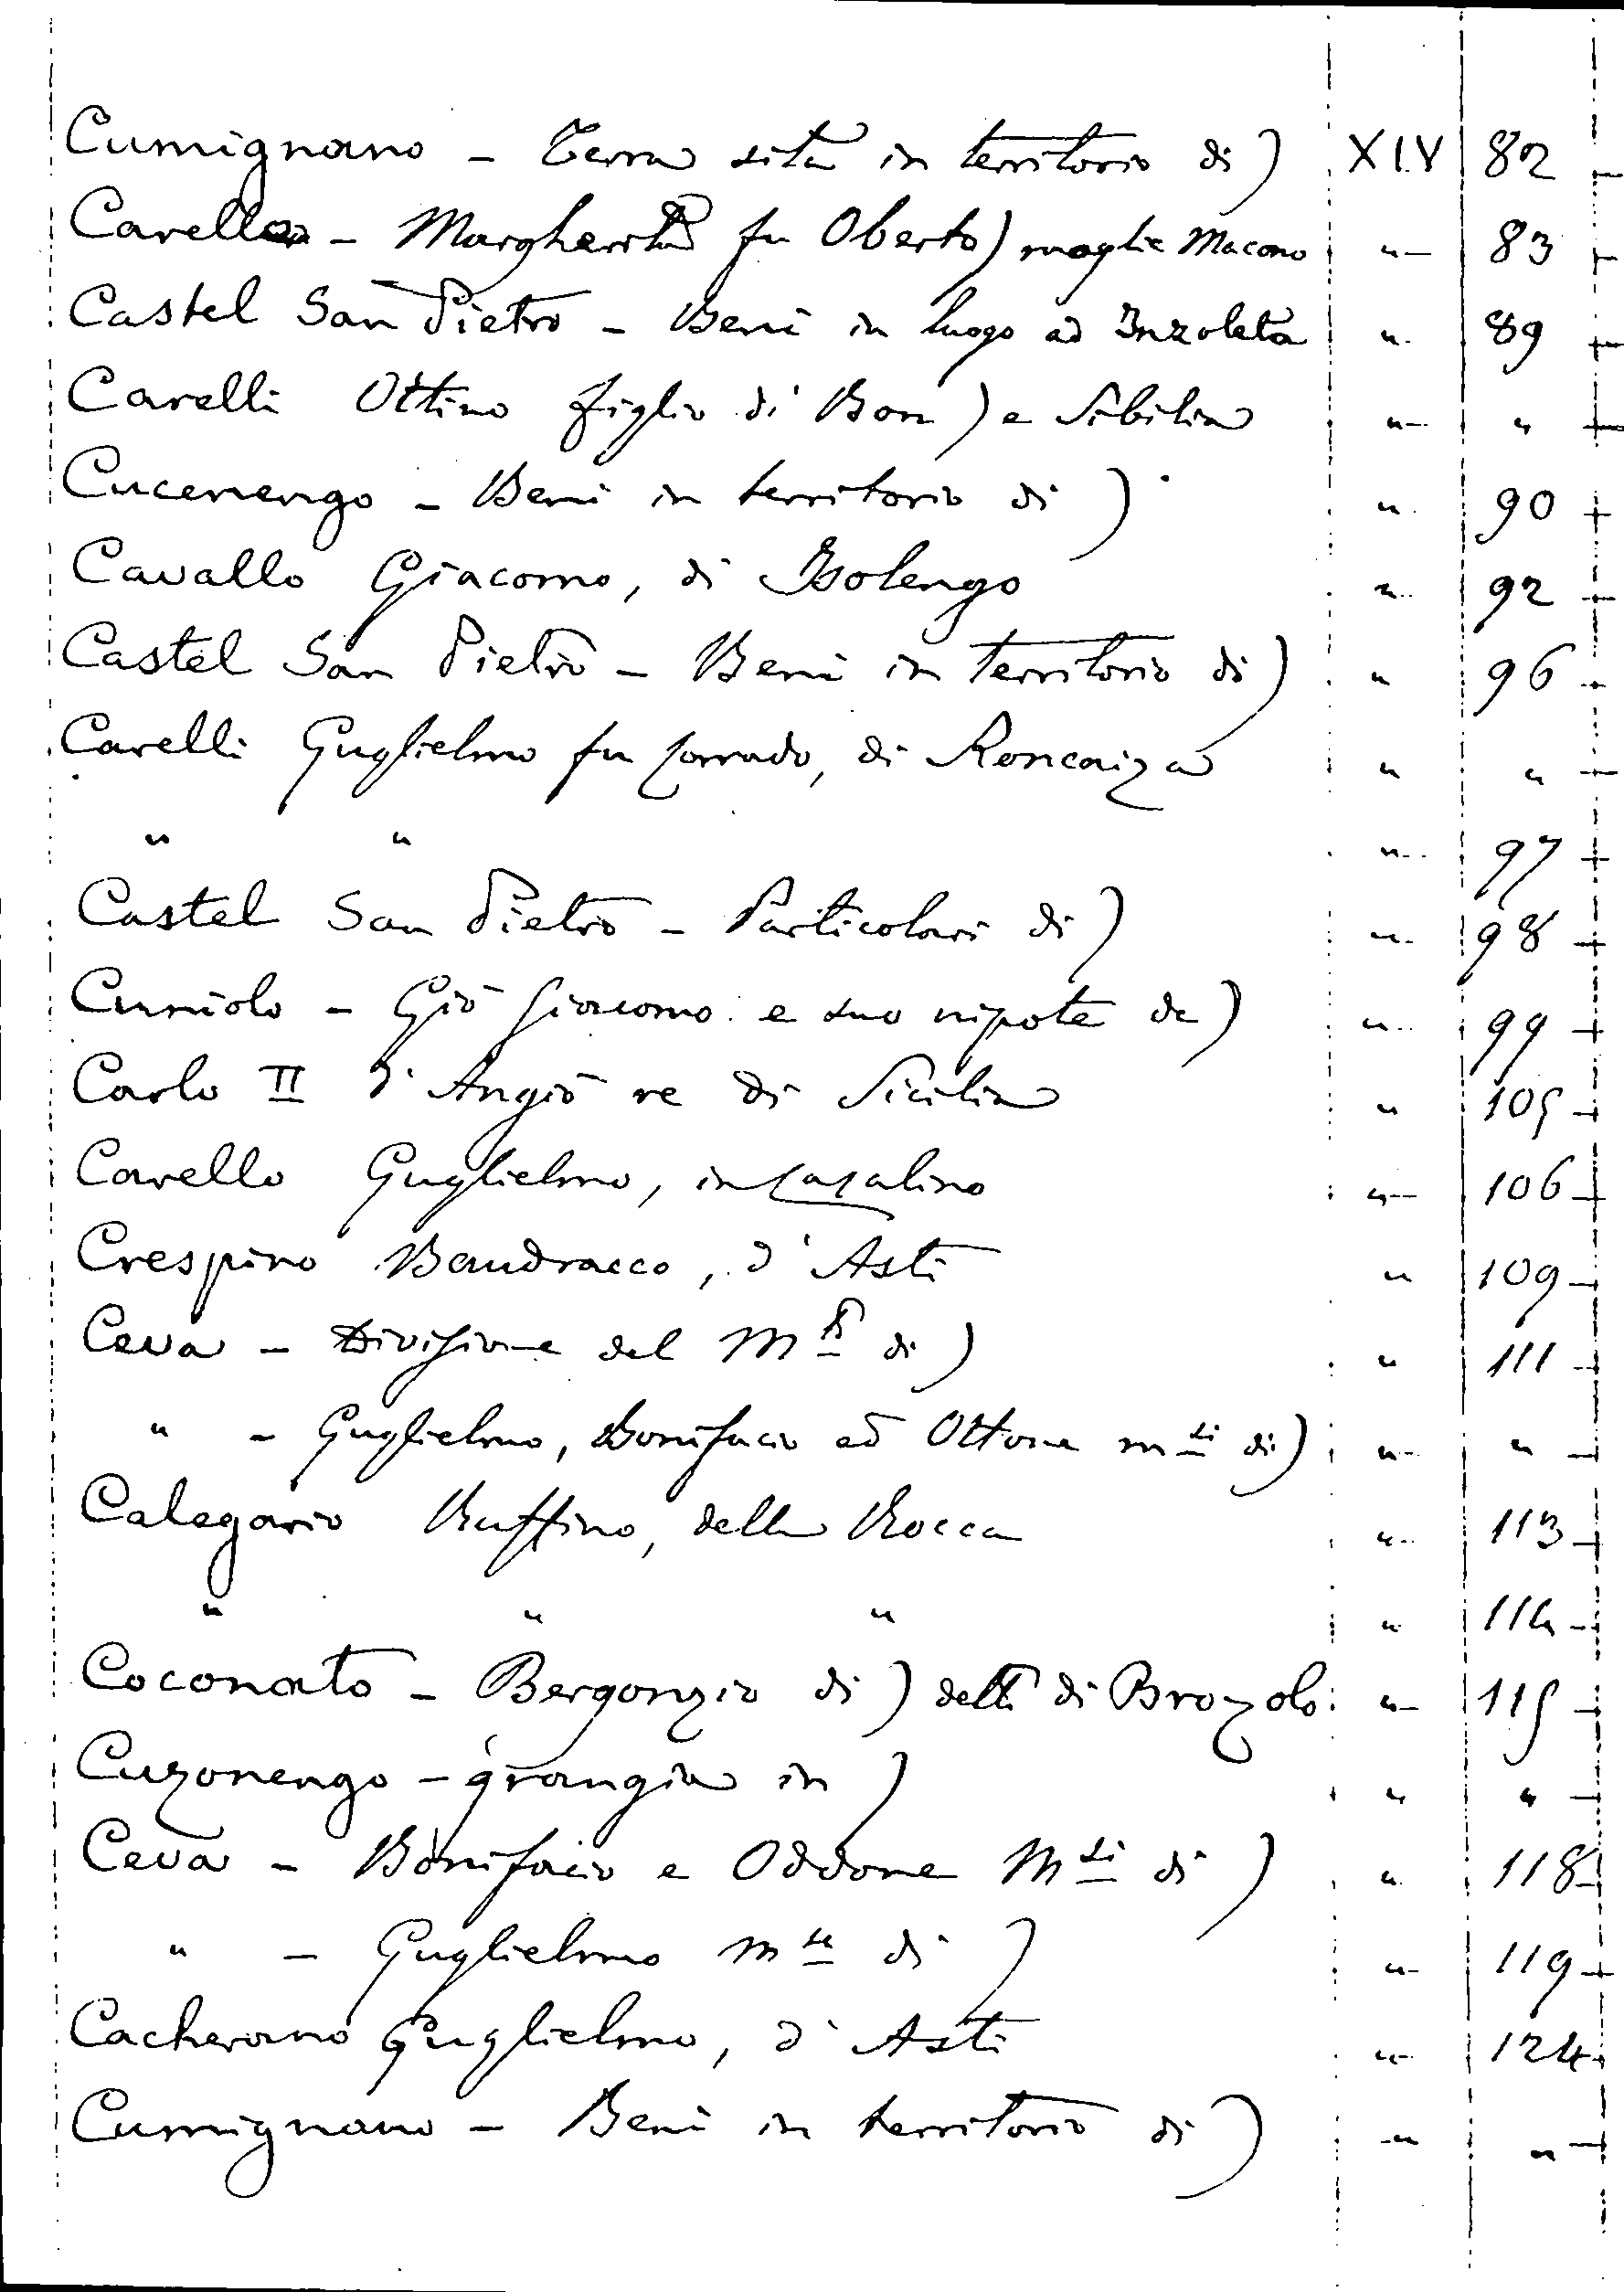 Cumignano - Terra sita in territorio di) XIV 82
Carello - Margherita fu Oberto) moglie Macono " 83
Castel San Pietro - Beni in luogo ad Inzoleta " 89
Carelli Ottino figlio di Bon) e Sibilia " "
Cucenengo - Beni in territorio di) " 90
Cavallo Giacomo, di Isolengo " 92
Castel San Pietro - Beni in territorio di) " 96
Carelli Guglielmo fu Corrado, di Roncaiza " "
" " " 97
Castel San Pietro - Particolari di) " 98
Cuniolo - Gio Giacomo e suo nipote de) " 99
Carlo II d'Angiò re di Sicilia " 105
Carello Guglielmo, in Casalino " 106
Crespino Baudracco, d'Asti " 109
Ceva - Divisione del Mto di) " 111
" - Guglielmo, Bonifacio ed Ottone msi di) " "
Calegario Ruffino, della Rocca " 113
" " " " 114
Coconato - Bergonzio di) detti di Brozolo " 115
Cuzonengo - grangia in) " "
Ceva - Bonifacio e Oddone Msi di) " 118
" - Guglielmo mse di) " 119
Cacherano Guglielmo, d'Asti " 124
Cumignano - Beni in territorio di) " "